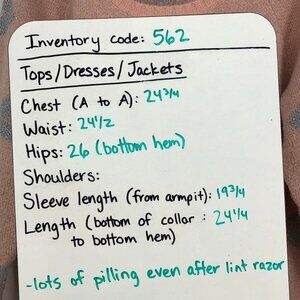 Inventory code: 562
Tops/Dresses/Jackets
Chest (A to A): 24 3/4
Waist: 24 1/2
Hips: 26 (bottom hem)
Shoulders:
Sleeve length (from armpit): 19 3/4
Length (bottom of collar : 24 1/4
to bottom hem)
-lots of pilling even after lint razor